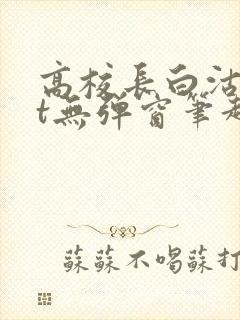 高校長白沽
t無彈窗筆趣
蘇蘇不喝蘇打